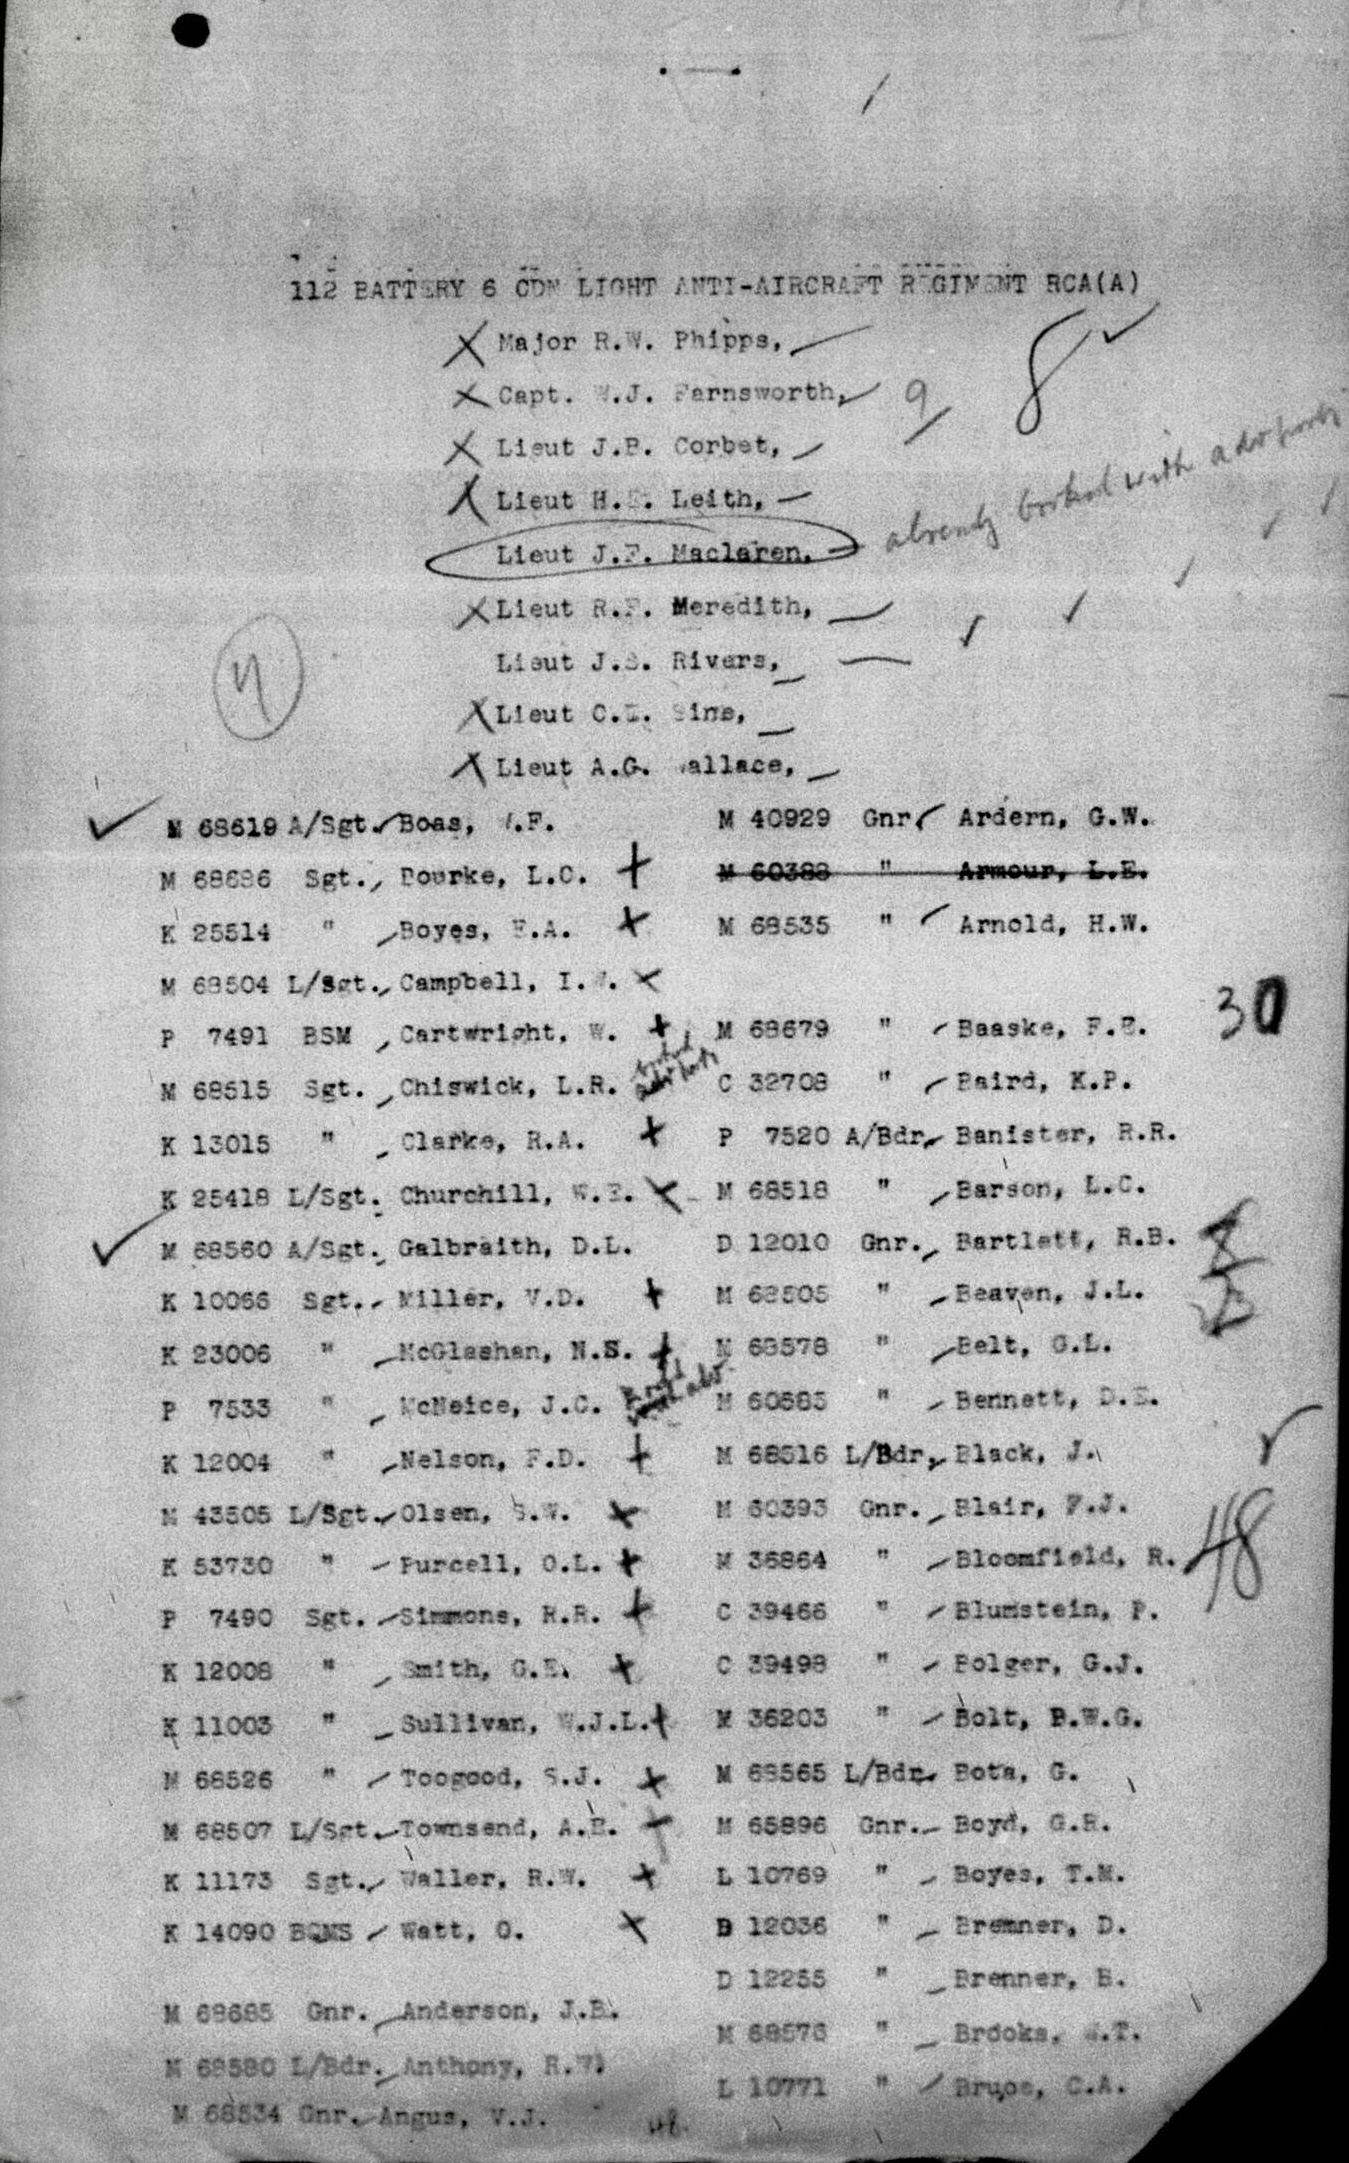 112 BATTERY 6 CDN LIGHT ANTI-AIRCRAFT REGIMENT RCA(A)
Major R.W. Phipps,
8
Capt. W.J. Farnsworth,
9
Lieut J.B. Corbet,
Lieut H. Leith,
Lieut J.F. Maclaren,
already booked with adv party
Lieut R.F. Meredith,
Lieut J. Rivers,
Lieut C. Sine,
Lieut A.G. Wallace,
M 68619 A/Sgt. Boas, W.F.
M 68686 Sgt., Bourke, L.C.
K 25514 " Boyes, E.A.
M 68504 L/Sgt., Campbell, I.
P 7491 BSM , Cartwright, W.
M 68515 Sgt. , Chiswick, L.R.
booked adv party
K 13015 " , Clarke, R.A.
K 25418 L/Sgt. Churchill, W.E.
M 68560 A/Sgt. Galbraith, D.L.
K 10066 Sgt. Miller, V.D.
K 23006 " McGlashan, N.S.
P 7533 " , McNeice, J.C.
K 12004 " Nelson, F.D.
M 43505 L/Sgt. Olsen, S.W.
K 53730 " Purcell, O.L.
P 7490 Sgt. Simmons, R.R.
K 12008 " , Smith, G.E.
K 11003 " Sullivan, W.J.L.
M 68526 " Toogood, S.J.
M 68507 L/Sgt. Townsend, A.E.
K 11173 Sgt., Waller, R.W.
K 14090 BQMS Watt, O.
M 68685 Gnr. Anderson, J.B.
M 68580 L/Bdr. Anthony, R.W.
M 68534 Gnr. Angus, V.J.
M 40929 Gnr. Ardern, G.W.
M 60388 " Armour, L.E.
M 68535 " Arnold, H.W.
30
M 68679 " Baaske, F.E.
C 32708 " Baird, K.P.
P 7520 A/Bdr. Banister, R.R.
M 68518 " Barson, L.C.
D 12010 Gnr., Bartlett, R.B.
M 68505 " Beaven, J.L.
M 68578 " Belt, G.L.
M 60685 " Bennett, D.E.
M 68516 L/Bdr, Black, J.
M 60393 Gnr. Blair, F.J.
M 36864 " Bloomfield, R.
48
C 39466 " Blumstein, P.
C 39498 " Bolger, G.J.
M 36203 " Bolt, B.W.G.
M 68565 L/Bdr. Bota, G.
M 65896 Gnr. Boyd, G.R.
L 10769 " Boyes, T.M.
B 12036 " Bremner, D.
D 12255 " Brenner, B.
M 68576 " Brooks, W.T.
L 10771 " Bruce, C.A.
48